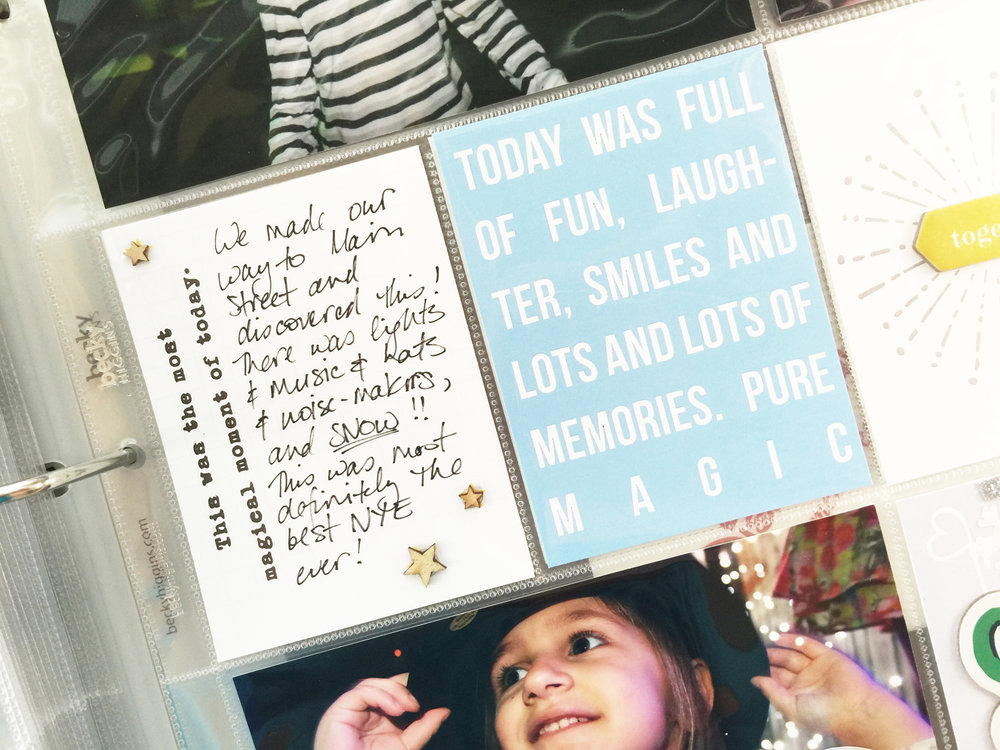 This was the most
magical moment of today.
We made our
way to Main
Street and
discovered this!
There was lights
& Music & Hats
& noise-makers,
and SNOW!!
This was most
definitely the
best NYE
ever!
TODAY WAS FULL
OF FUN, LAUGH-
TER, SMILES AND
LOTS AND LOTS OF
MEMORIES. PURE
MAGIC
toge
becky
higgins
beckyhiggins.com